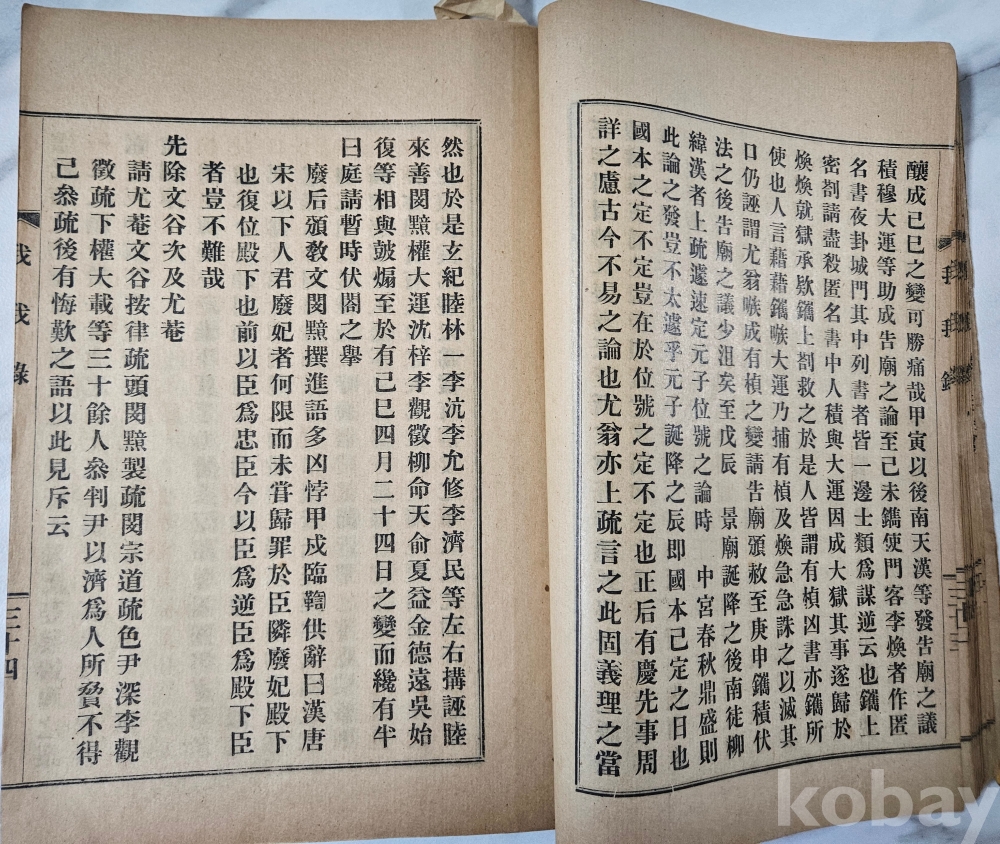 釀成己巳之變可勝痛哉甲寅以後南天漢等發告廟之議
積穆大運等助成告廟之論至己未鐫使門客李煥者作匿
名書夜卦城門其中列書者皆一邊士類爲謀逆云也鑴上
密劄請盡殺匿名書中人積與大運因成大獄其事遂歸於
煥煥就獄承欵鑴上劄救之於是人皆謂有楨凶書亦鑴所
使也人言藉藉鑴嗾大運乃捕有楨及煥急急誅之以滅其
口仍誣謂尤翁嗾成有楨之變請告廟頒赦至庚申鑴積伏
法之後告廟之議少沮矣至戊辰 景廟誕降之後南徒柳
緯漢者上疏遽速定元子位號之論時 中宮春秋鼎盛則
此論之發豈不太遽乎元子誕降之辰即國本已定之日也
國本之定不定豈在於位號之定不定也正后有慶先事周
詳之慮古今不易之論也尤翁亦上疏言之此固義理之當
然也於是玄紀睦林一李沆李允修李濟民等左右搆誣睦
來善閔黯權大運沈梓李觀徵柳命天俞夏益金德遠吳始
復等相與鼓煽至於有己巳四月二十四日之變而纔有半
日庭請暫時伏閤之擧
廢后頒敎文閔黯撰進語多凶悖甲戍臨鞫供辭曰漢唐
宋以下人君廢妃者何限而未甞歸罪於臣隣廢妃殿下
也復位殿下也前以臣爲忠臣今以臣爲逆臣爲殿下臣
者豈不難哉
先除文谷次及尤菴
請尤菴文谷按律疏頭閔黯製疏閔宗道疏色尹深李觀
徵疏下權大載等三十餘人叅判尹以濟爲人所脅不得
己叅疏後有悔歎之語以此見斥云
我我錄
三十四
kobay